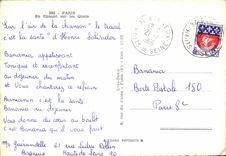 380 - PARIS
En flânant sur les Quais
Sur l'air de la chanson "le travail
c'est la santé" d'Henri Salvador
Bananier, appétissant
Tonique et réconfortant
au déjeuner du matin
et Vous chanterez ce refrain
Banania c'est la santé
Banania au déjeuner
Vous donne du cœur au boulot
c'est Banania qu'il vous faut
21 rue Ledru Rollin
Bagneux Hauts de Seine
Banania
Boite Postale 150
Paris 8e